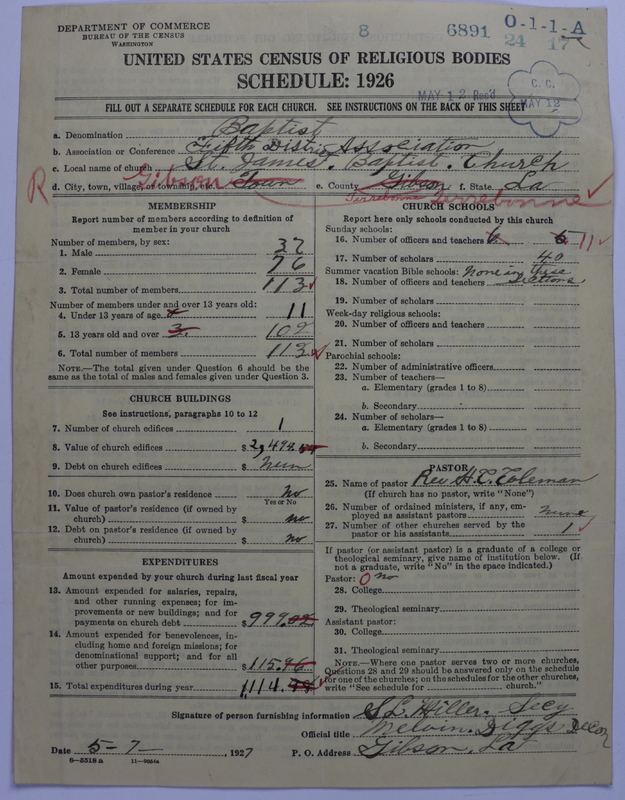 DEPARTMENT OF COMMERCE
BUREAU OF THE CENSUS
WASHINGTON
8
6891
0-1-1-A
24 17
UNITED STATES CENSUS OF RELIGIOUS BODIES
SCHEDULE: 1926
MAY 12 Rec'd
C. C.
MAY 12
FILL OUT A SEPARATE SCHEDULE FOR EACH CHURCH. SEE INSTRUCTIONS ON THE BACK OF THIS SHEET
a. Denomination Baptist
b. Association or Conference Fifth District Association
c. Local name of church St. James. Baptist. Church
R d. City, town, village, or township, etc. Gibson Town e. County Gibson f. State La
Terrebonne Terrebonne
MEMBERSHIP
Report number of members according to definition of
member in your church
Number of members, by sex:
1. Male 37
2. Female 76
3. Total number of members 113
Number of members under and over 13 years old:
4. Under 13 years of age 11
5. 13 years old and over 3. 102
6. Total number of members 113
NOTE.—The total given under Question 6 should be
same as the total of males and females given under Question 3.
CHURCH BUILDINGS
See instructions, paragraphs 10 to 12
7. Number of church edifices 1
8. Value of church edifices $2,498
9. Debt on church edifices $ Nun
10. Does church own pastor's residence No
Yes or No
11. Value of pastor's residence (if owned by
church) $ no
12. Debt on pastor's residence (if owned by
church) $ No
EXPENDITURES
Amount expended by your church during last fiscal year
13. Amount expended for salaries, repairs,
and other running expenses; for im-
provements or new buildings; and for
payments on church debt $999.
14. Amount expended for benevolences, in-
cluding home and foreign missions; for
denominational support; and for all
other purposes $115.96
15. Total expenditures during year 1114.
CHURCH SCHOOLS
Report here only schools conducted by this church
Sunday schools:
16. Number of officers and teachers 6 5 11
17. Number of scholars 40
Summer vacation Bible schools: None in these
18. Number of officers and teachers sections.
19. Number of scholars
Week-day religious schools:
20. Number of officers and teachers
21. Number of scholars
Parochial schools:
22. Number of administrative officers
23. Number of teachers—
a. Elementary (grades 1 to 8)
b. Secondary
24. Number of scholars—
a. Elementary (grades 1 to 8)
b. Secondary
PASTOR
25. Name of pastor Rev H.C. Coleman
(If church has no pastor, write "None")
26. Number of ordained ministers, if any, em-
ployed as assistant pastors None
27. Number of other churches served by the
pastor or his assistants 1
If pastor (or assistant pastor) is a graduate of a college or
theological seminary, give name of institution below. (If
not a graduate, write "No" in the space indicated.)
Pastor: 0 no
28. College
29. Theological seminary
Assistant pastor:
30. College
31. Theological seminary
NOTE.—Where one pastor serves two or more churches,
Questions 28 and 29 should be answered only on the schedule
for one of the churches; on the schedules for the other churches,
write "See schedule for church."
Signature of person furnishing information S L Hiller. Secy
Official title Melvin. Diggs. Decon
Date 5-7- 1927 P. O. Address Gibson, La
8—5518 a 11—9054a